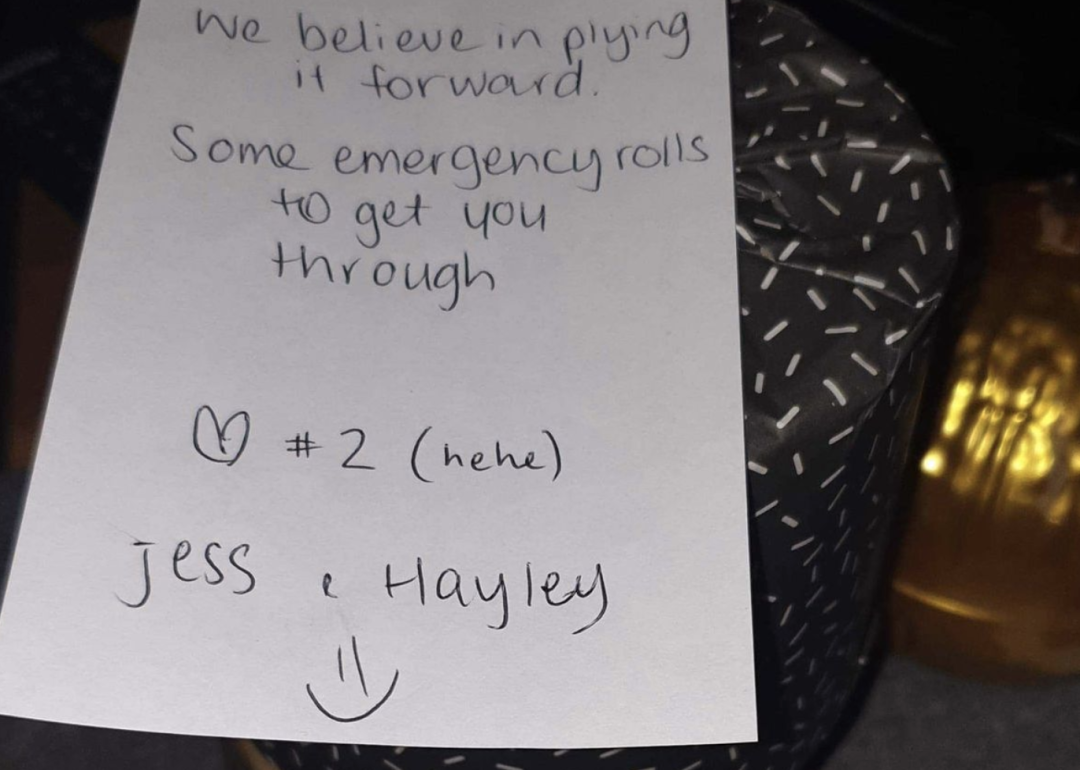 We believe in plying
it forward.
Some emergency rolls
to get you
through
♡ #2 (hehe)
Jess & Hayley